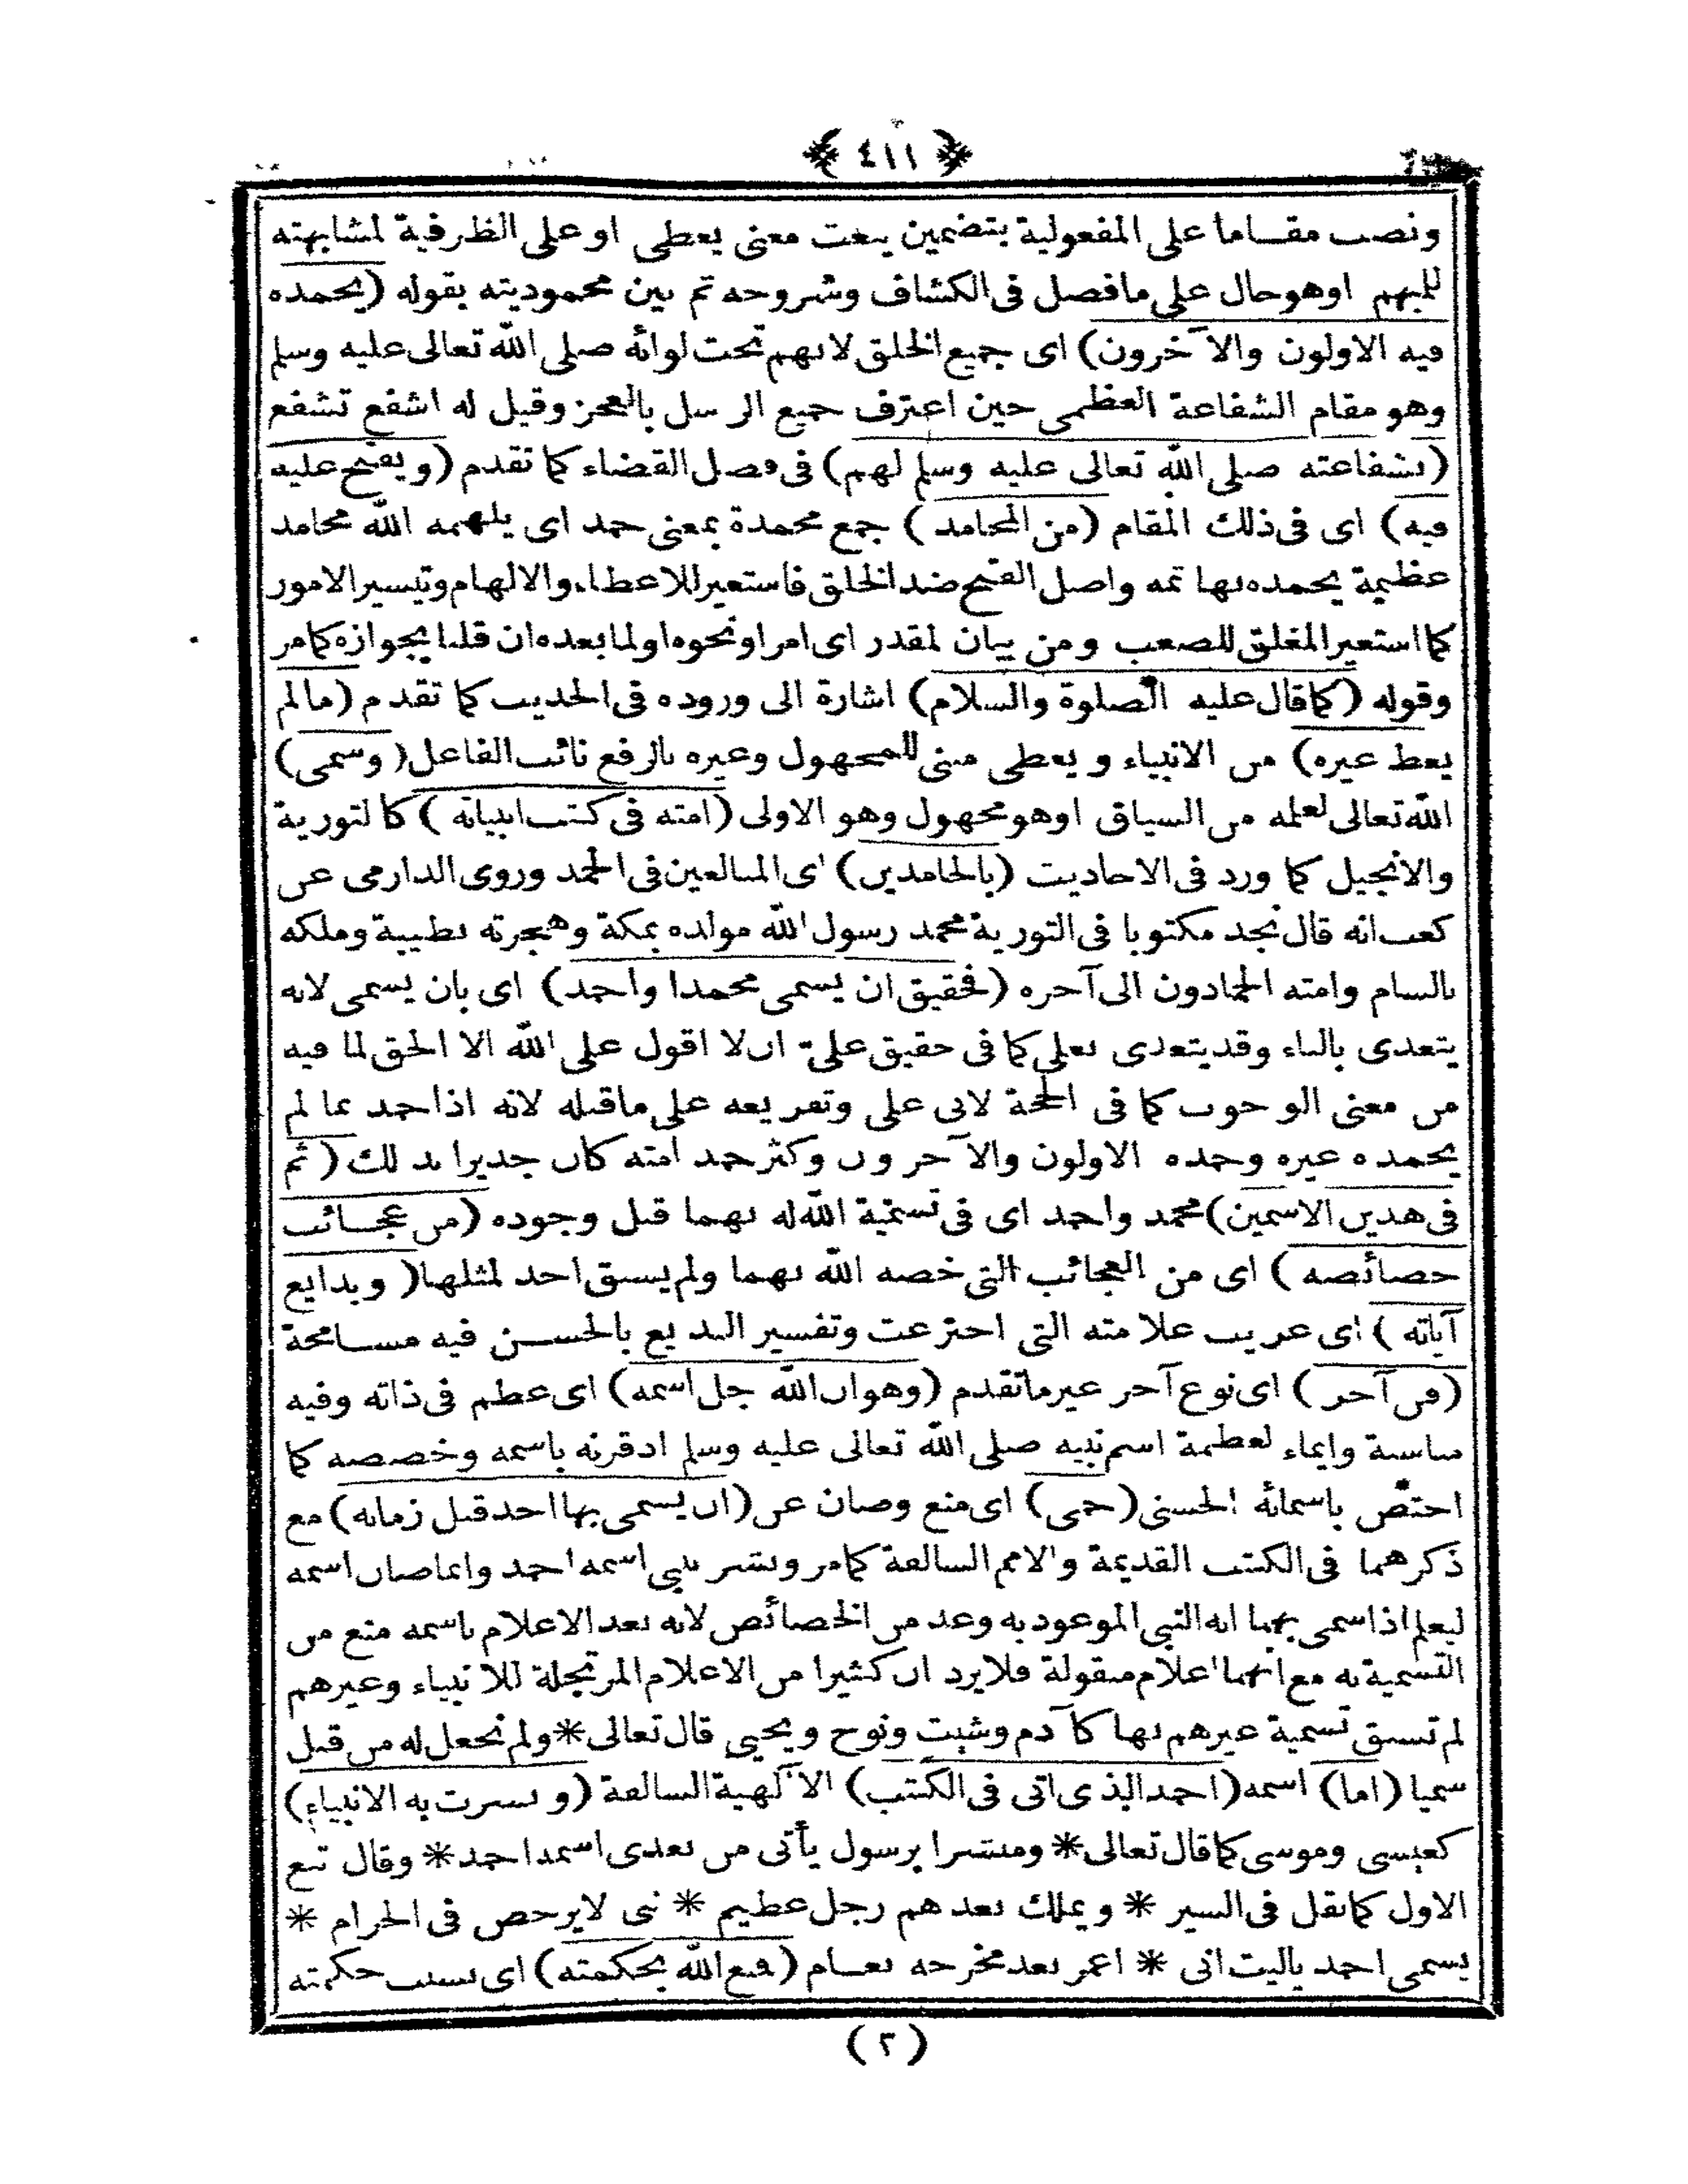 ﴿ ٤١١ ﴾
ونصب مقاما على المفعولية بتضمين يبعث معنى يعطى او على الظرفية لمشابهته
للمبهم اوهوحال على مافصل فى الكشاف وشروحه ثم بين محموديته بقوله (يحمده
فيه الاولون والآخرون) اى جميع الخلق لانهم تحت لوائه صلى الله تعالى عليه وسلم
وهو مقام الشفاعة العظمى حين اعترف جميع الرسل بالعجز وقيل له اشفع تشفع
(بشفاعته صلى الله تعالى عليه وسلم لهم) فى فصل القضاء كما تقدم (ويفتح عليه
فيه) اى فى ذلك المقام (من المحامد) جمع محمدة بمعنى حمد اى يلهمه الله محامد
عظيمة يحمده بها ثمه واصل الفتح ضد الخلق فاستعير للاعطاء والالهام وتيسير الامور
كما استعير المغلق للصعب ومن بيان لمقدر اى امرا ونحوه اولما بعده ان قلنا بجوازه كمامر
وقوله (كماقال عليه الصلوة والسلام) اشارة الى وروده فى الحديث كما تقدم (مالم
يعط غيره) من الانبياء ويعطى مبنى للمجهول وغيره بالرفع نائب الفاعل (وسمى)
الله تعالى لعلمه من السياق اوهو مجهول وهو الاولى (امته فى كتب انبيائه) كالتورية
والانجيل كما ورد فى الاحاديث (بالحامدين) اى المبالغين فى الحمد وروى الدارمى عن
كعب انه قال نجد مكتوبا فى التورية محمد رسول الله مولده بمكة وهجرته بطيبة وملكه
بالشام وامته الحمادون الى آخره (فحقيق ان يسمى محمدا واحمد) اى بان يسمى لانه
يتعدى بالباء وقد يتعدى بعلى كما فى حقيق علىّ ان لا اقول على الله الا الحق لما فيه
من معنى الوجوب كما فى الحجة لابى على وتفريعه على ماقبله لانه اذا حمد بما لم
يحمده غيره وحمده الاولون والآخرون وكثر حمد امته كان جديرا بذلك (ثم
فى هذين الاسمين) محمد واحمد اى فى تسمية الله له بهما قبل وجوده (من عجائب
خصائصه) اى من العجائب التى خصه الله بهما ولم يسبق احد لمثلها (وبدايع
آياته) اى غريب علامته التى اخترعت وتفسير البديع بالحسن فيه مسامحة
(فن آخر) اى نوع آخر غير ماتقدم (وهو ان الله جل اسمه) اى عظم فى ذاته وفيه
مناسبة وايماء لعظمة اسم نبيه صلى الله تعالى عليه وسلم اذ قرنه باسمه وخصصه كما
اختص باسمائه الحسنى (حمى) اى منع وصان عن (ان يسمى بها احد قبل زمانه) مع
ذكرهما فى الكتب القديمة والامم السالفة كمامر وبشر بنبى اسمه احمد وانماصان اسمه
ليعلم اذا سمى بهما انه النبى الموعود به وعد من الخصائص لانه بعد الاعلام باسمه منع من
التسمية به مع انهما اعلام منقولة فلا يرد ان كثيرا من الاعلام المرتجلة للانبياء وغيرهم
لم تسبق تسمية غيرهم بها كآدم وشيث ونوح ويحيى قال تعالى * ولم نجعل له من قبل
سميا (اما) اسمه (احمد الذى اتى فى الكتب) الآلهية السالفة (وبشرت به الانبياء)
كعيسى وموسى كماقال تعالى * ومبشرا برسول يأتى من بعدى اسمه احمد * وقال تبع
الاول كمانقل فى السير * ويملك بعدهم رجل عظيم * نبى لايرخص فى الحرام *
يسمى احمد ياليت انى * اعمر بعد مخرجه بعام (فمنع الله بحكمته) اى بسبب حكمته
(٢)